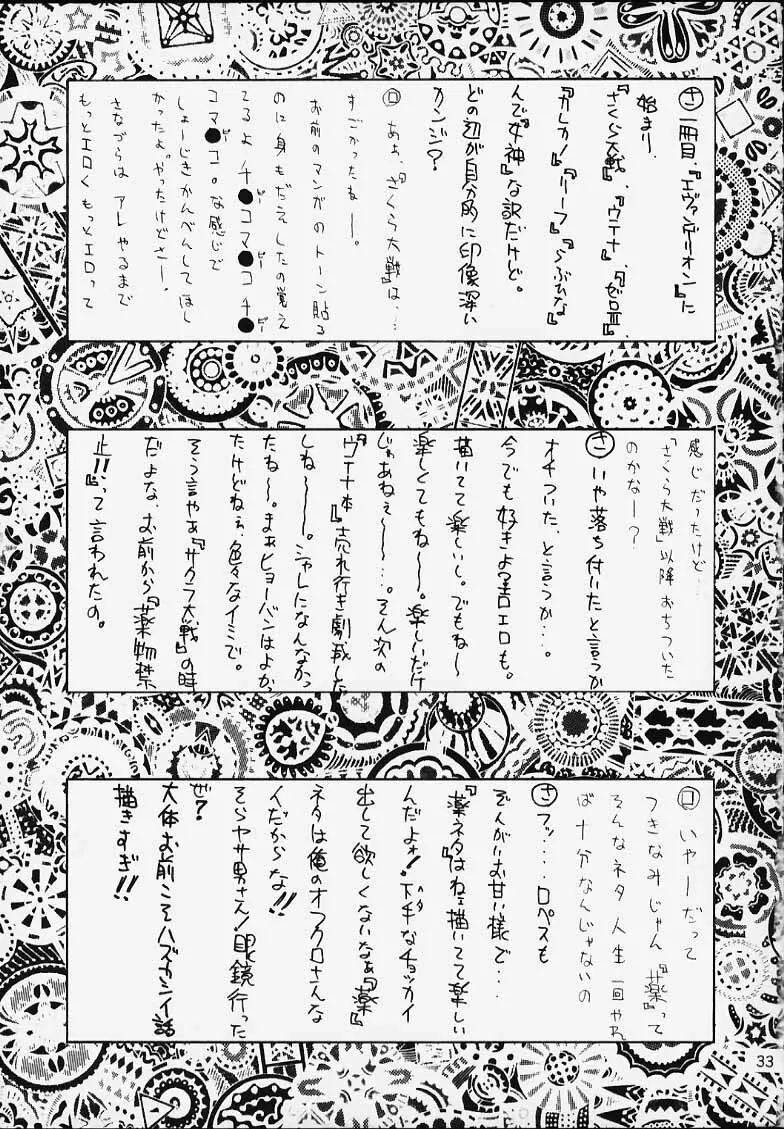 ㋚一冊目、『エヴァンゲリオン』に
始まり、
『さくら大戦』、『ウテナ』、『ゼロⅢ』、
『カレカノ』『リーフ』『らぶひな』
んで『女神』な訳だけど。
どの辺が自分的に印像深い
カンジ?
㋺ あぁ、『さくら大戦』は…
すごかったねー。
お前のマンガのトーン貼る
のに身もだえしたの覚え
てるよ チ●コマ●コチ●
コマ●コ。な感じで
しょーじきかんべんしてほし
かったよ。やったけどさー、
さなづらは アレやるまで
もっとエロくもっとエロって
感じだったけど…
「さくら大戦」以降おちついた
のかなー?
㋚いや落ち付いたと言うか
オチついた、と言うか…。
今でも好きよ?エロエロも。
描いてて楽しいし。でもね〜
楽しくてもね〜。楽しいだけ
じゃあねぇ〜…。そん次の
『ウテナ本』売れ行き劇減した
しね〜。シャレになんなかっ
たね〜。まぁヒョーバンはよかっ
たけどねぇ、色々なイミで。
そう言やぁ『サクラ大戦』の時
だよな、お前から『薬物禁
止!!』って言われたの。
㋺ いやーだって
つきなみじゃん『薬』って
そんなネタ人生一回やれ
ば十分なんじゃないの
㋚フッ…。ロペスも
ぞんがいお甘い様で…
『薬ネタはねェ描いてて楽しい
んだよォ!下手なチョッカイ
ヘタ
出して欲しくないなぁ『薬』
ネタは俺のオフクロさんな
んだからな!!
そらヤサ男さん!眼鏡行った
ぜ?
大体お前こそハズカシイ話
描きすぎ!!
33